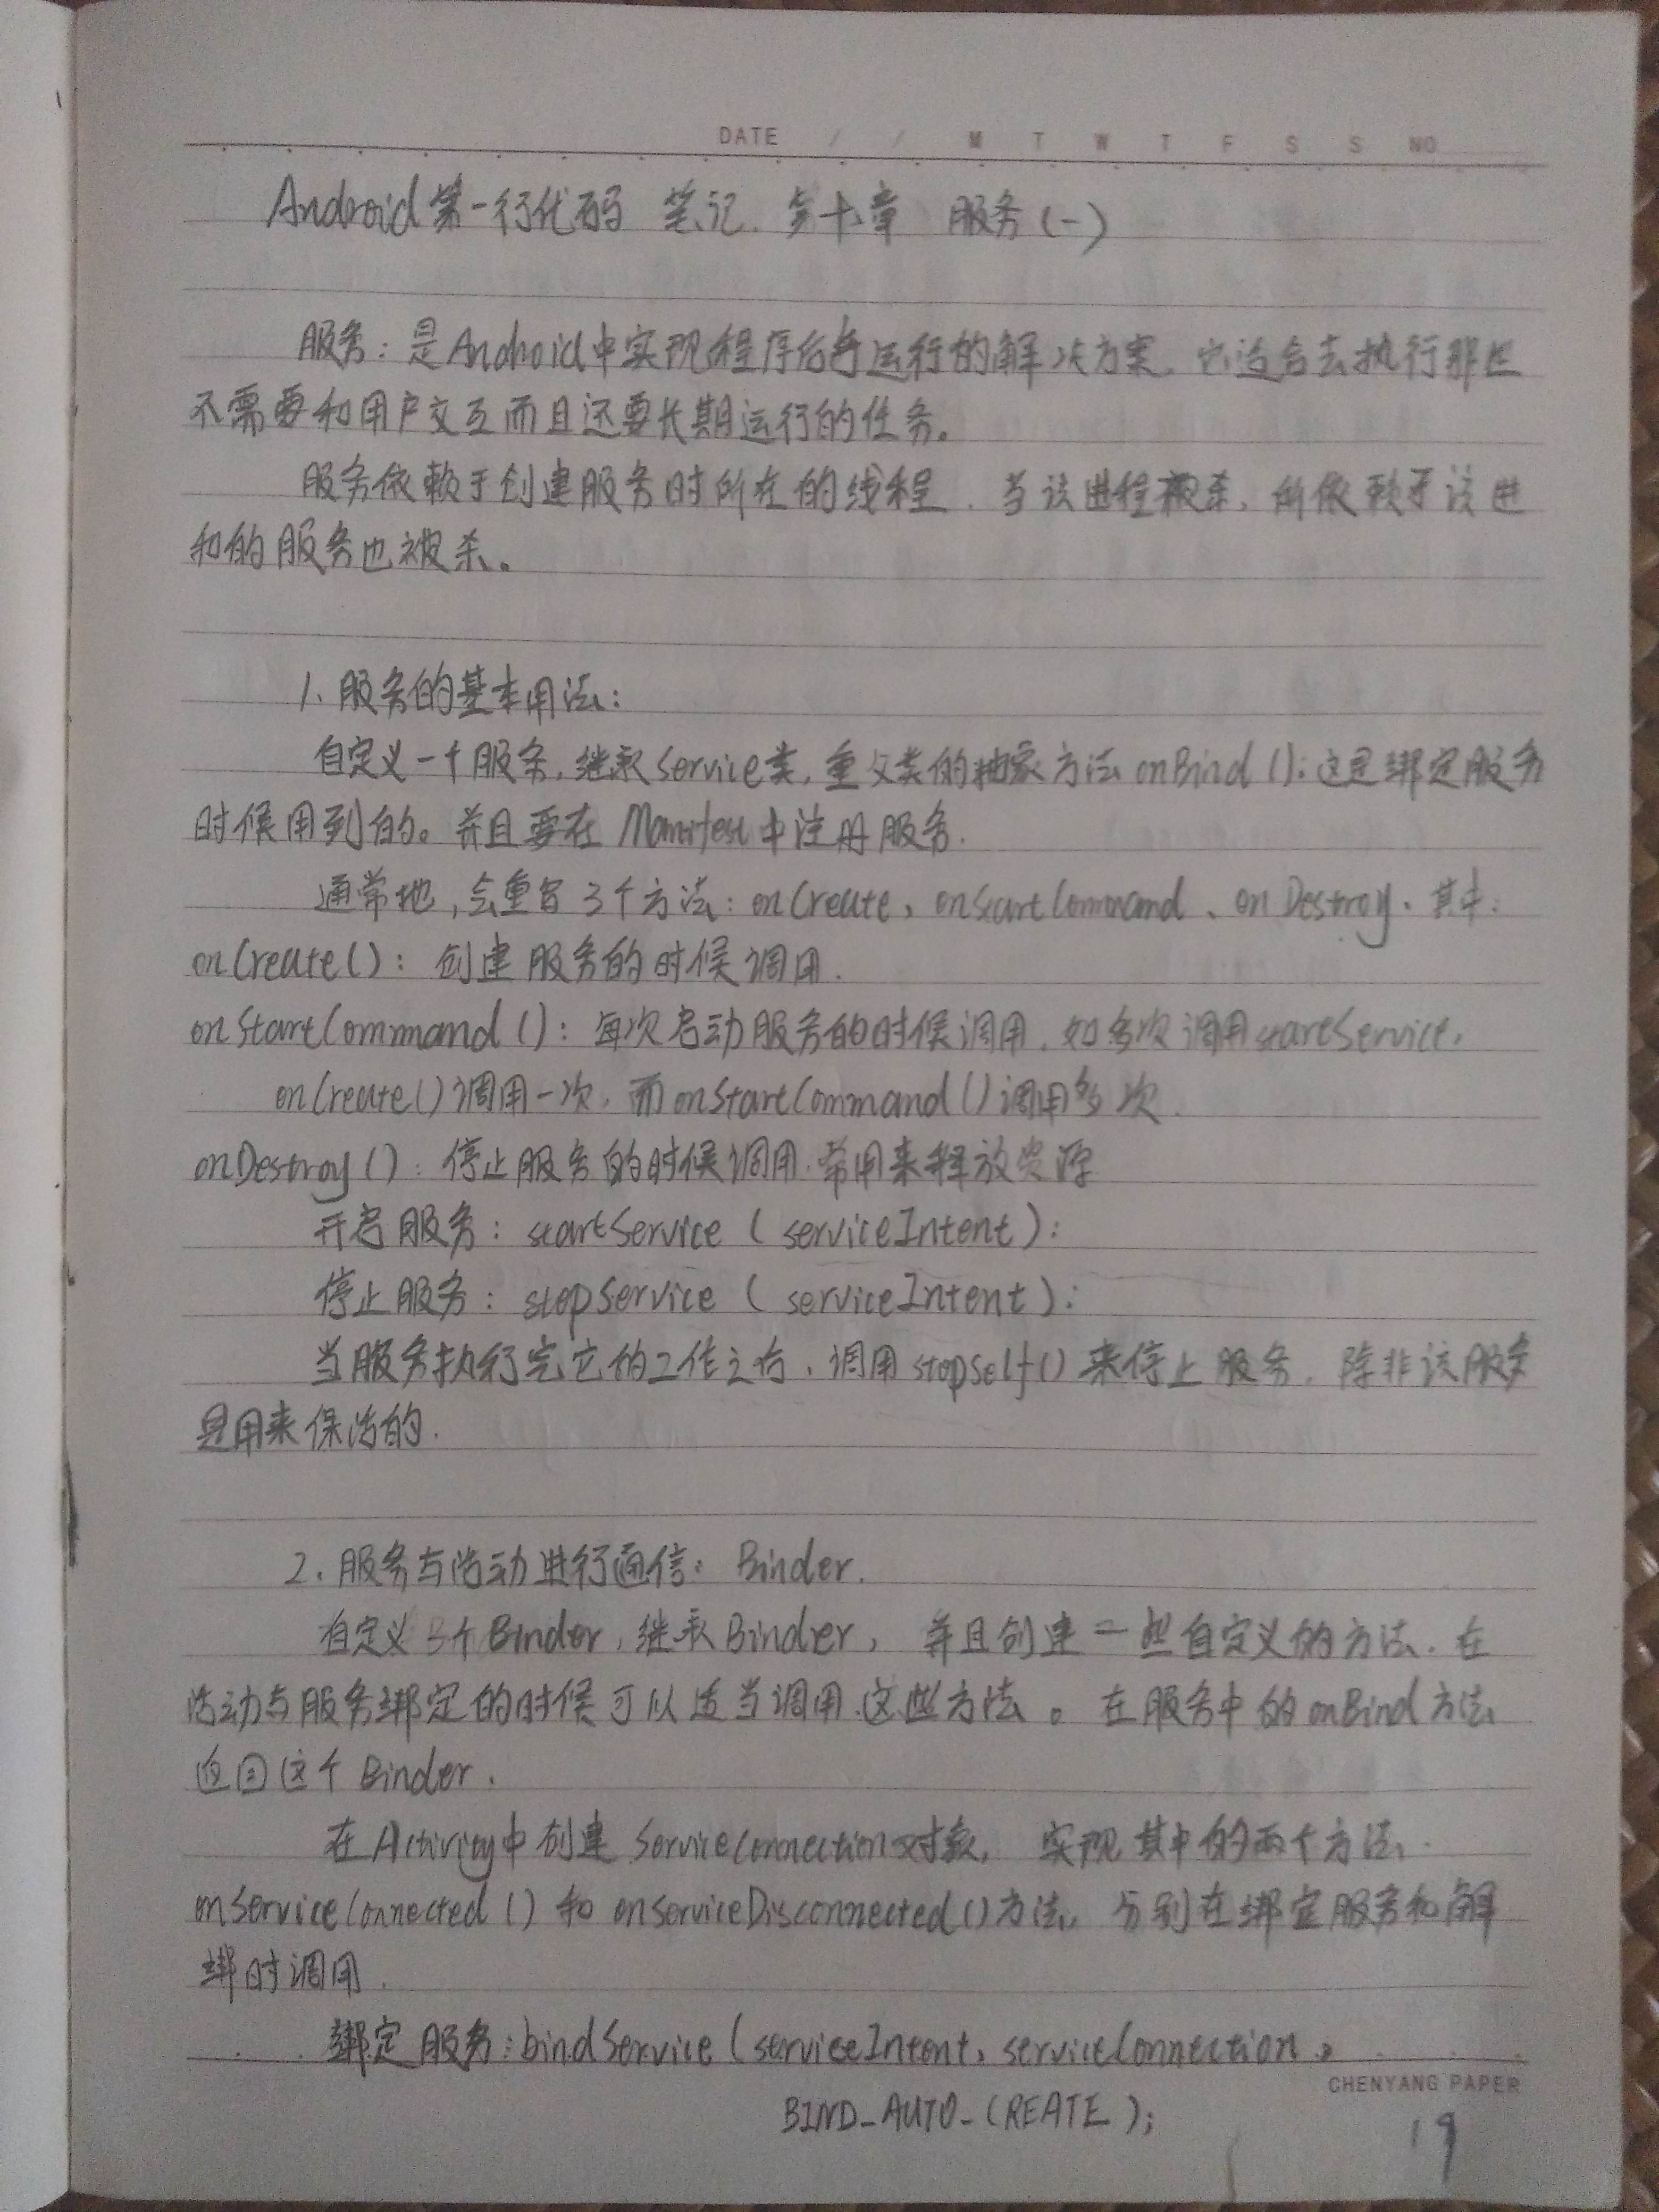 DATE / / M T W T F S S NO
Android第一行代码 笔记. 第十章 服务(一)
服务：是Android中实现程序后台运行的解决方案，它适合去执行那些
不需要和用户交互而且还要长期运行的任务。
服务依赖于创建服务时所在的线程，当该进程被杀，所依赖于该进
和的服务也被杀。
1、服务的基本用法：
自定义一个服务，继承Service类，重父类的抽象方法onBind()；这是绑定服务
时候用到的。并且要在Manifest中注册服务.
通常地，会重写3个方法：onCreate、onStartCommand、onDestroy. 其中：
onCreate()：创建服务的时候调用.
onStartCommand()：每次启动服务的时候调用，如多次调用startService，
onCreate()调用一次，而onStartCommand()调用多次.
onDestroy()：停止服务的时候调用，常用来释放资源
开启服务：startService（serviceIntent）；
停止服务：stopService（serviceIntent）；
当服务执行完它的工作之后，调用stopSelf()来停止服务，除非该服务
是用来保活的.
2、服务与活动进行通信：Binder.
自定义个Binder，继承Binder，并且创建一些自定义的方法. 在
活动与服务绑定的时候可以适当调用这些方法。在服务中的onBind方法
返回这个Binder.
在Activity中创建ServiceConnection对象，实现其中的两个方法，
onServiceConnected()和onServiceDisconnected()方法，分别在绑定服务和解
绑时调用.
绑定服务：bindService（serviceIntent，serviceConnection，
CHENYANG PAPER
BIND_AUTO_CREATE）；
19